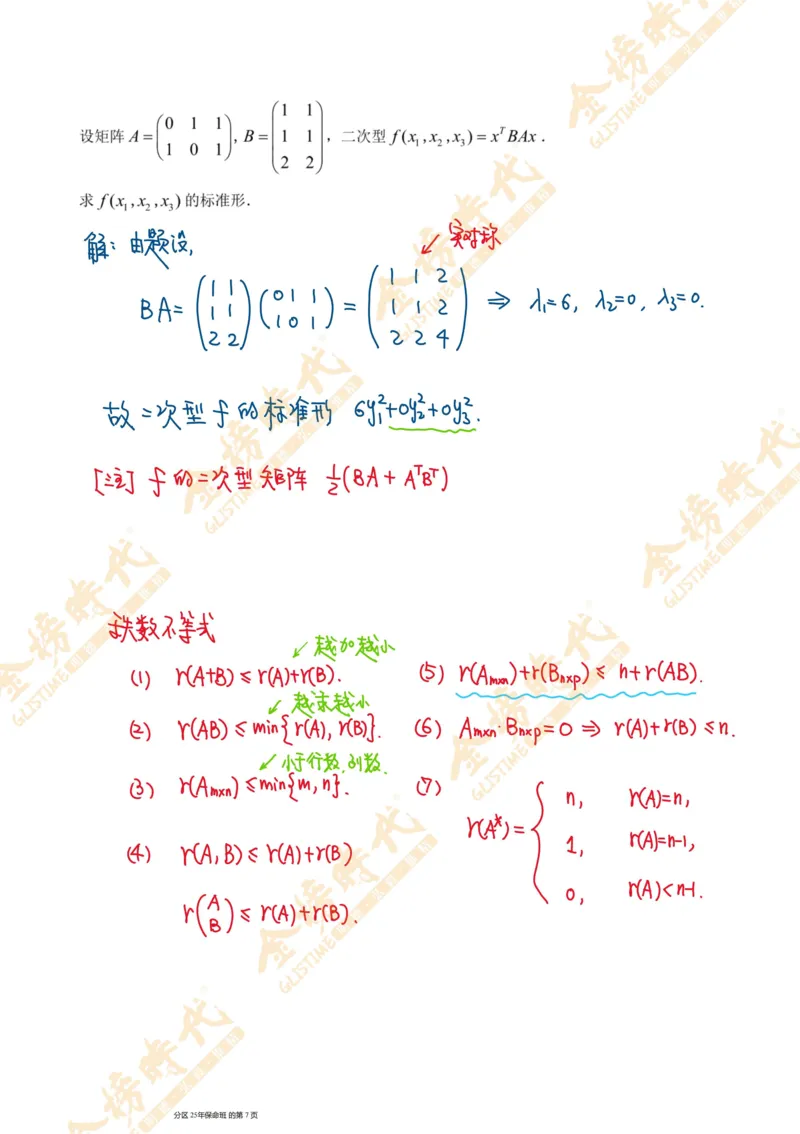 设矩阵 A = (0 1 1; 1 0 1), B = (1 1; 1 1; 2 2), 二次型 f(x₁,x₂,x₃) = xᵀBAx.
求 f(x₁,x₂,x₃) 的标准形.
解: 由题设,
↙ 实对称
BA = (1 1; 1 1; 2 2)(0 1 1; 1 0 1) = (1 1 2; 1 1 2; 2 2 4) ⇒ λ₁=6, λ₂=0, λ₃=0.
故二次型 f 的标准形 6y₁²+0y₂²+0y₃².
[注] f 的二次型矩阵 1/2(BA + AᵀBᵀ)
秩数不等式
↙ 越加越小
(1) r(A+B) ≤ r(A)+r(B).
↙ 越乘越小
(2) r(AB) ≤ min{r(A), r(B)}.
↙ 小于行数,列数.
(3) r(Aₘₓₙ) ≤ min{m, n}.
(4) r(A, B) ≤ r(A)+r(B)
r(A; B) ≤ r(A)+r(B).
(5) r(Aₘₓₙ)+r(Bₙₓₚ) ≤ n+r(AB).
(6) Aₘₓₙ·Bₙₓₚ=0 ⇒ r(A)+r(B) ≤ n.
(7) r(A*) = { n, r(A)=n,
1, r(A)=n-1,
0, r(A)<n-1.
金榜時代
GLISTIME
分区 25年保命班 的第 7 页